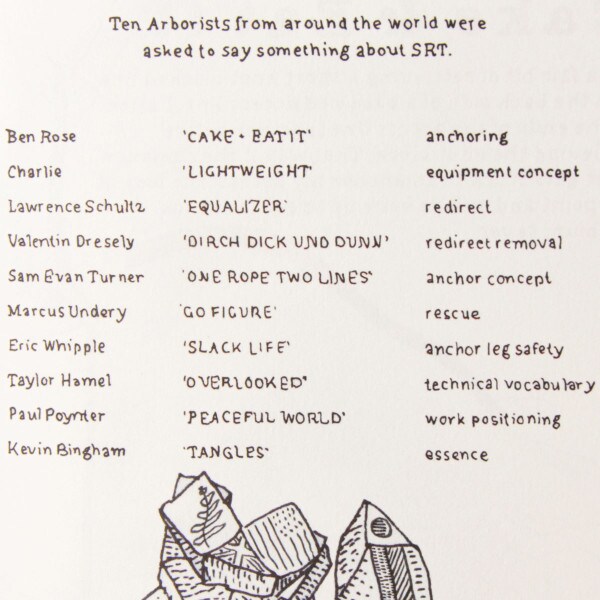 Ten Arborists from around the world were
asked to say something about SRT.
Ben Rose 'CAKE + EAT IT' anchoring
Charlie 'LIGHTWEIGHT' equipment concept
Lawrence Schultz 'EQUALIZER' redirect
Valentin Dresely 'DIRCH DICK UND DUNN' redirect removal
Sam Evan Turner 'ONE ROPE TWO LINES' anchor concept
Marcus Undery 'GO FIGURE' rescue
Eric Whipple 'SLACK LIFE' anchor leg safety
Taylor Hamel 'OVERLOOKED' technical vocabulary
Paul Poynter 'PEACEFUL WORLD' work positioning
Kevin Bingham 'TANGLES' essence